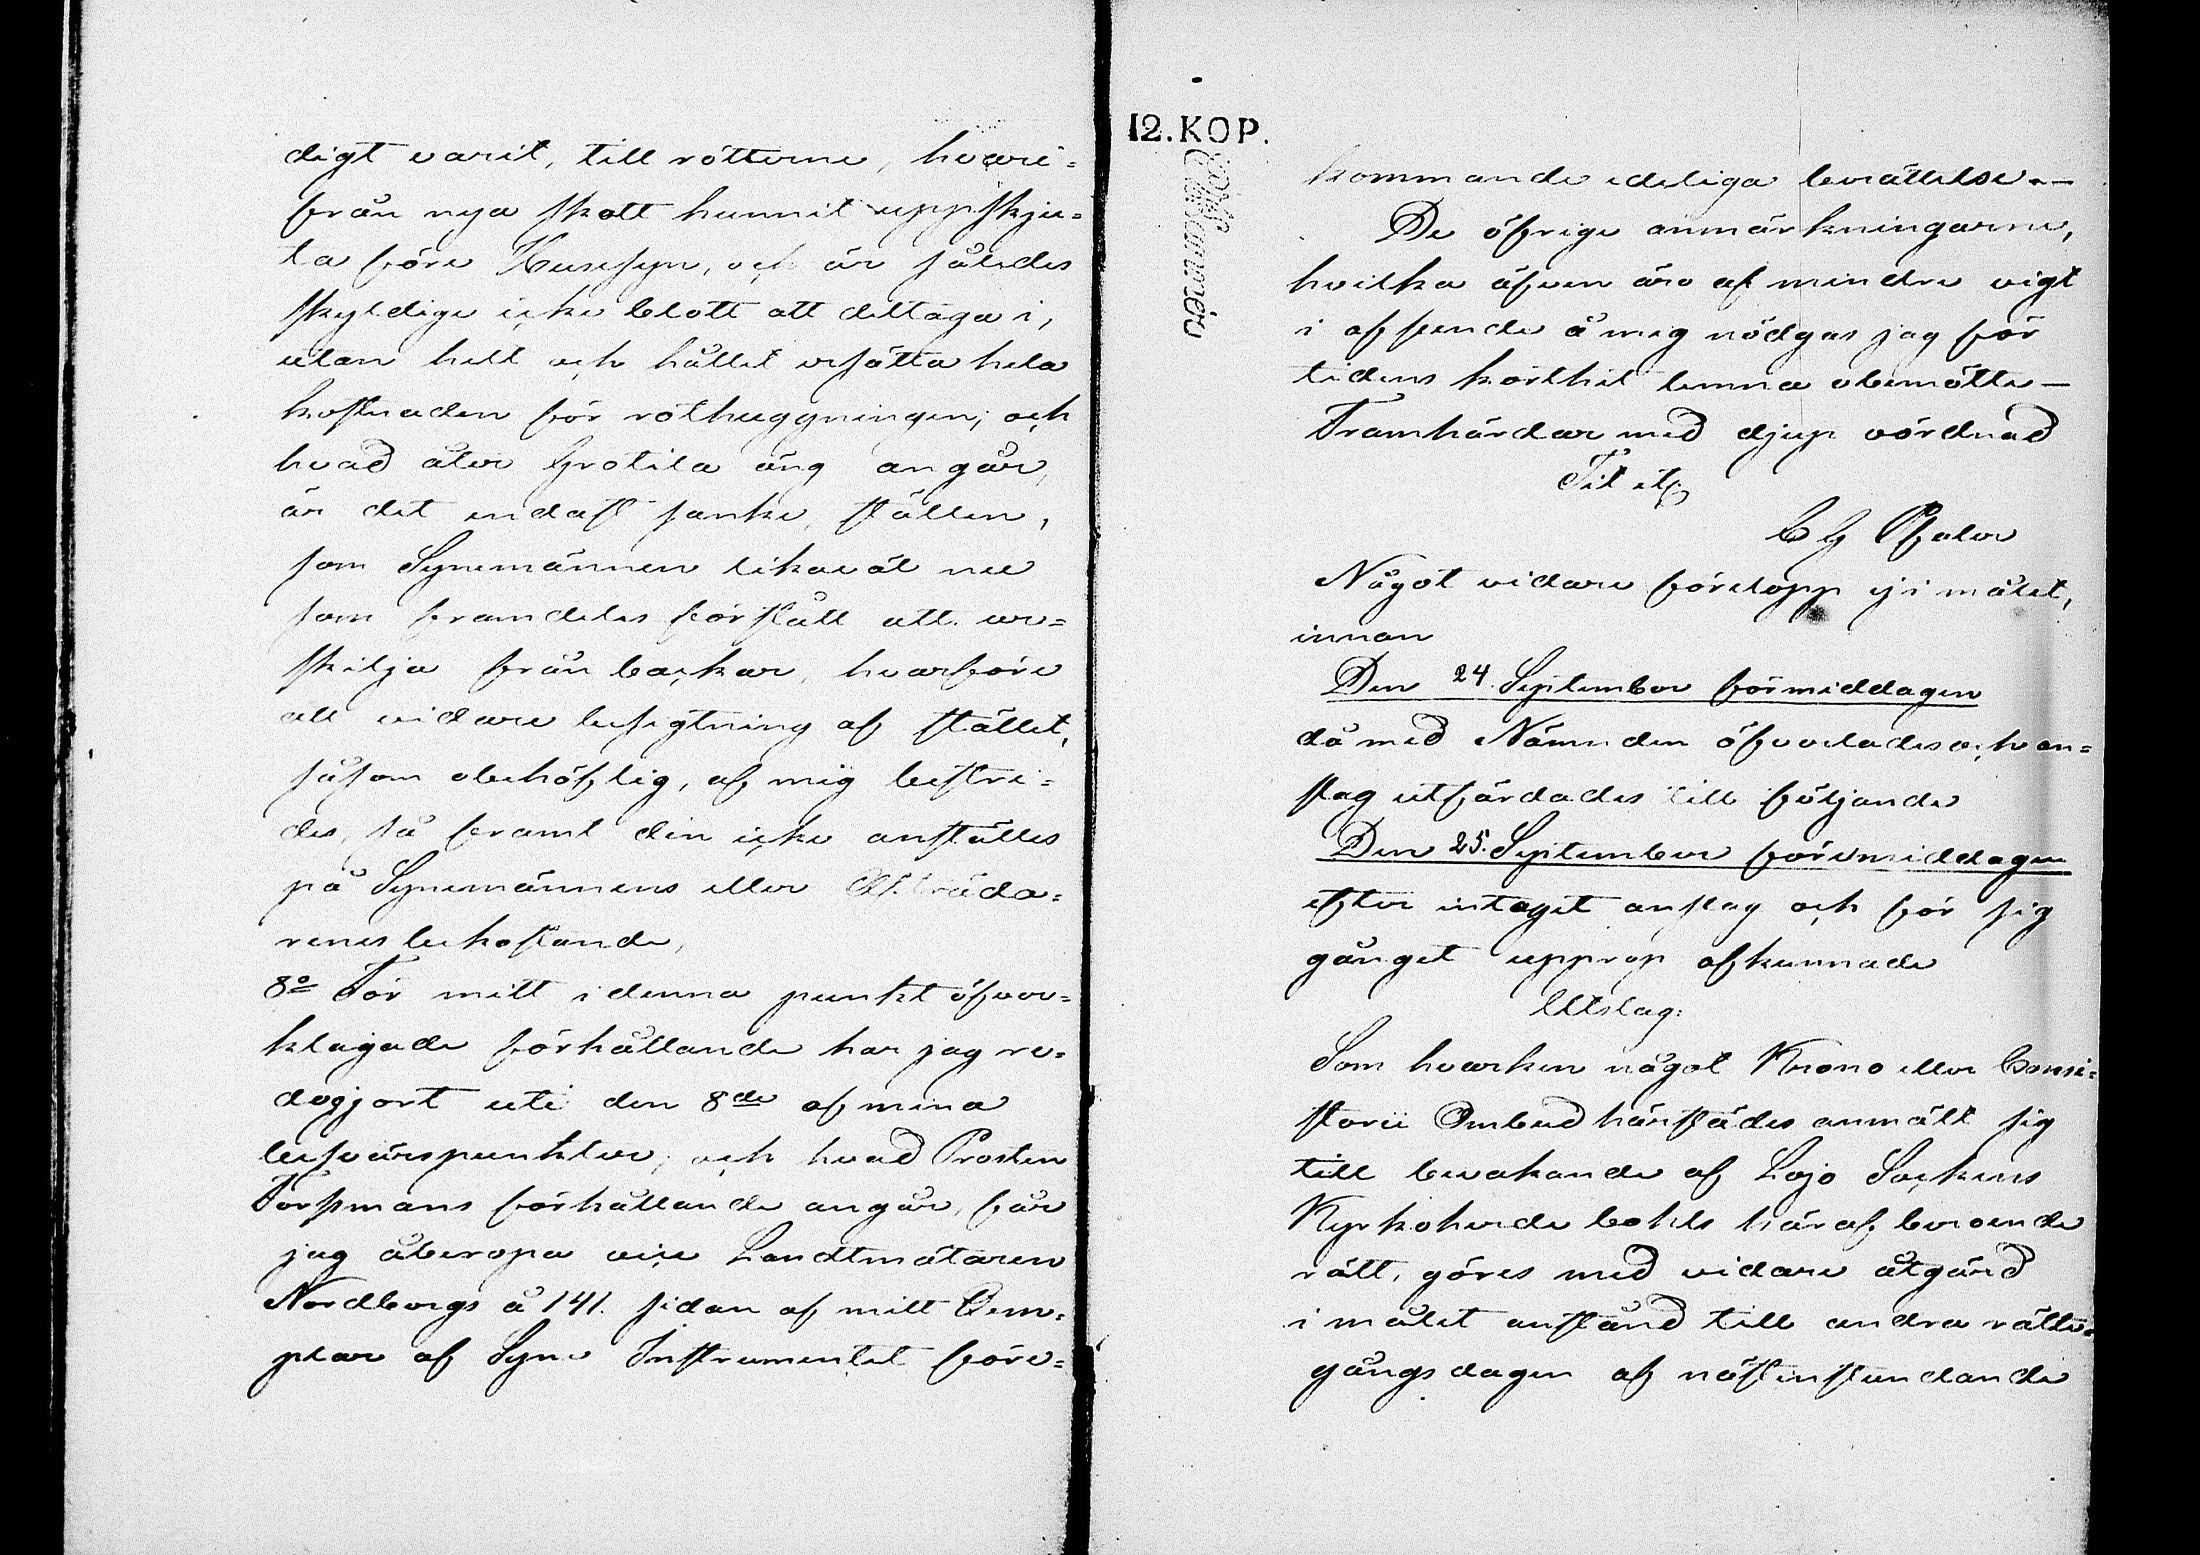 digt varit, till rötterne, hvari=
från nya skott hunnit uppskju=
ta före Husesyn, och är således
skyldige icke blott att deltaga i,
utan helt och hållet ersätta hela
kostnaden för röthuggningen; och
hvad åter Grotila äng angår,
är det endast sanke ställen,
som Synemännen likaväl nu
som framdeles förstått att ur=
skilja från backar, hvarföre
all vidare besigtning af stället,
såsom obehöflig, af mig bestri=
des, så framt den icke anställes
på Synemännens eller Afträda=
renes bekostande,
8o För mitt i denna punkt öfver=
klagade förhållande har jag re=
dogjort uti den 8de af mina
besvärspunkter, och hvad Prosten
Forssmans förhållande angår, får
jag åberopa vice Landtmätaren
Nordbergs å 141. sidan af mitt Exem=
plar af Syne Instrumentet före=
12.KOP.
kommande edeliga berättelse.—
De öfrige anmärkningarne,
hvilka äfven äro af mindre vigt
i afseende å mig nödgas jag för
tidens korthet lemna obemötte—
Framhärdar med djup vördnad
Tit etc
C G Pfaler
Något vidare förelopp ej i målet,
innan
Den 24. September förmiddagen
då med Nämnden öfverlades och an=
slag utfärdades till följande
Den 25. September föremiddagen
efter intaget anslag och för sig
gånget upprop afkunnade
Utslag:
Som hvarken något Krono eller Consi=
storii Ombud härstädes anmält sig
till bevakande af Lojo Sockens
Kyrkoherde bohls häraf beroende
rätt, göres med vidare åtgärd
i målet anstånd till andra rätte=
gångs dagen af nästinstundande